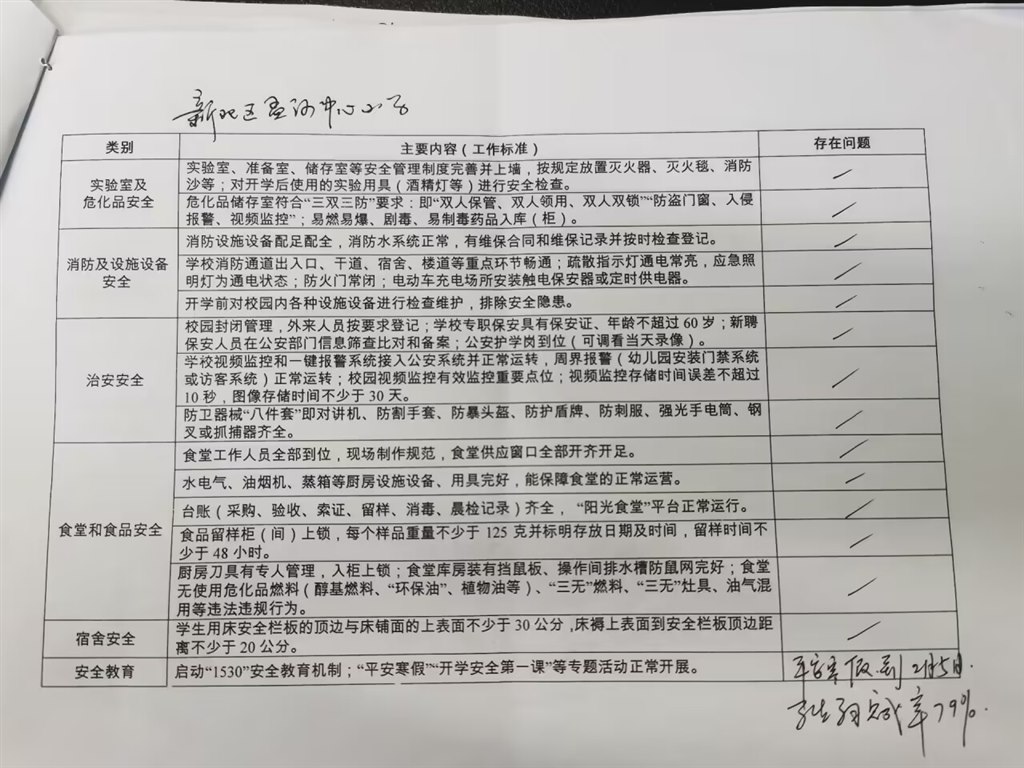 新北区孟河中心小学
类别 主要内容（工作标准） 存在问题
实验室及
危化品安全
实验室、准备室、储存室等安全管理制度完善并上墙，按规定放置灭火器、灭火毯、消防
沙等；对开学后使用的实验用具（酒精灯等）进行安全检查。
危化品储存室符合“三双三防”要求：即“双人保管、双人领用、双人双锁”“防盗门窗、入侵
报警、视频监控”；易燃易爆、剧毒、易制毒药品入库（柜）。
消防及设施设备
安全
消防设施设备配足配全，消防水系统正常，有维保合同和维保记录并按时检查登记。
学校消防通道出入口、干道、宿舍、楼道等重点环节畅通；疏散指示灯通电常亮，应急照
明灯为通电状态；防火门常闭；电动车充电场所安装触电保安器或定时供电器。
开学前对校园内各种设施设备进行检查维护，排除安全隐患。
治安安全
校园封闭管理，外来人员按要求登记；学校专职保安具有保安证、年龄不超过 60 岁；新聘
保安人员在公安部门信息筛查比对和备案；公安护学岗到位（可调看当天录像）。
学校视频监控和一键报警系统接入公安系统并正常运转，周界报警（幼儿园安装门禁系统
或访客系统）正常运转；校园视频监控有效监控重要点位；视频监控存储时间误差不超过
10 秒，图像存储时间不少于 30 天。
防卫器械“八件套”即对讲机、防割手套、防暴头盔、防护盾牌、防刺服、强光手电筒、钢
叉或抓捕器齐全。
食堂和食品安全
食堂工作人员全部到位，现场制作规范，食堂供应窗口全部开齐开足。
水电气、油烟机、蒸箱等厨房设施设备、用具完好，能保障食堂的正常运营。
台账（采购、验收、索证、留样、消毒、晨检记录）齐全，“阳光食堂”平台正常运行。
食品留样柜（间）上锁，每个样品重量不少于 125 克并标明存放日期及时间，留样时间不
少于 48 小时。
厨房刀具有专人管理，入柜上锁；食堂库房装有挡鼠板、操作间排水槽防鼠网完好；食堂
无使用危化品燃料（醇基燃料、“环保油”、植物油等）、“三无”燃料、“三无”灶具、油气混
用等违法违规行为。
宿舍安全
学生用床安全栏板的顶边与床铺面的上表面不少于 30 公分,床褥上表面到安全栏板顶边距
离不少于 20 公分。
安全教育
启动“1530”安全教育机制；“平安寒假”“开学安全第一课”等专题活动正常开展。
平安寒假到2月5日.
完成率79%.